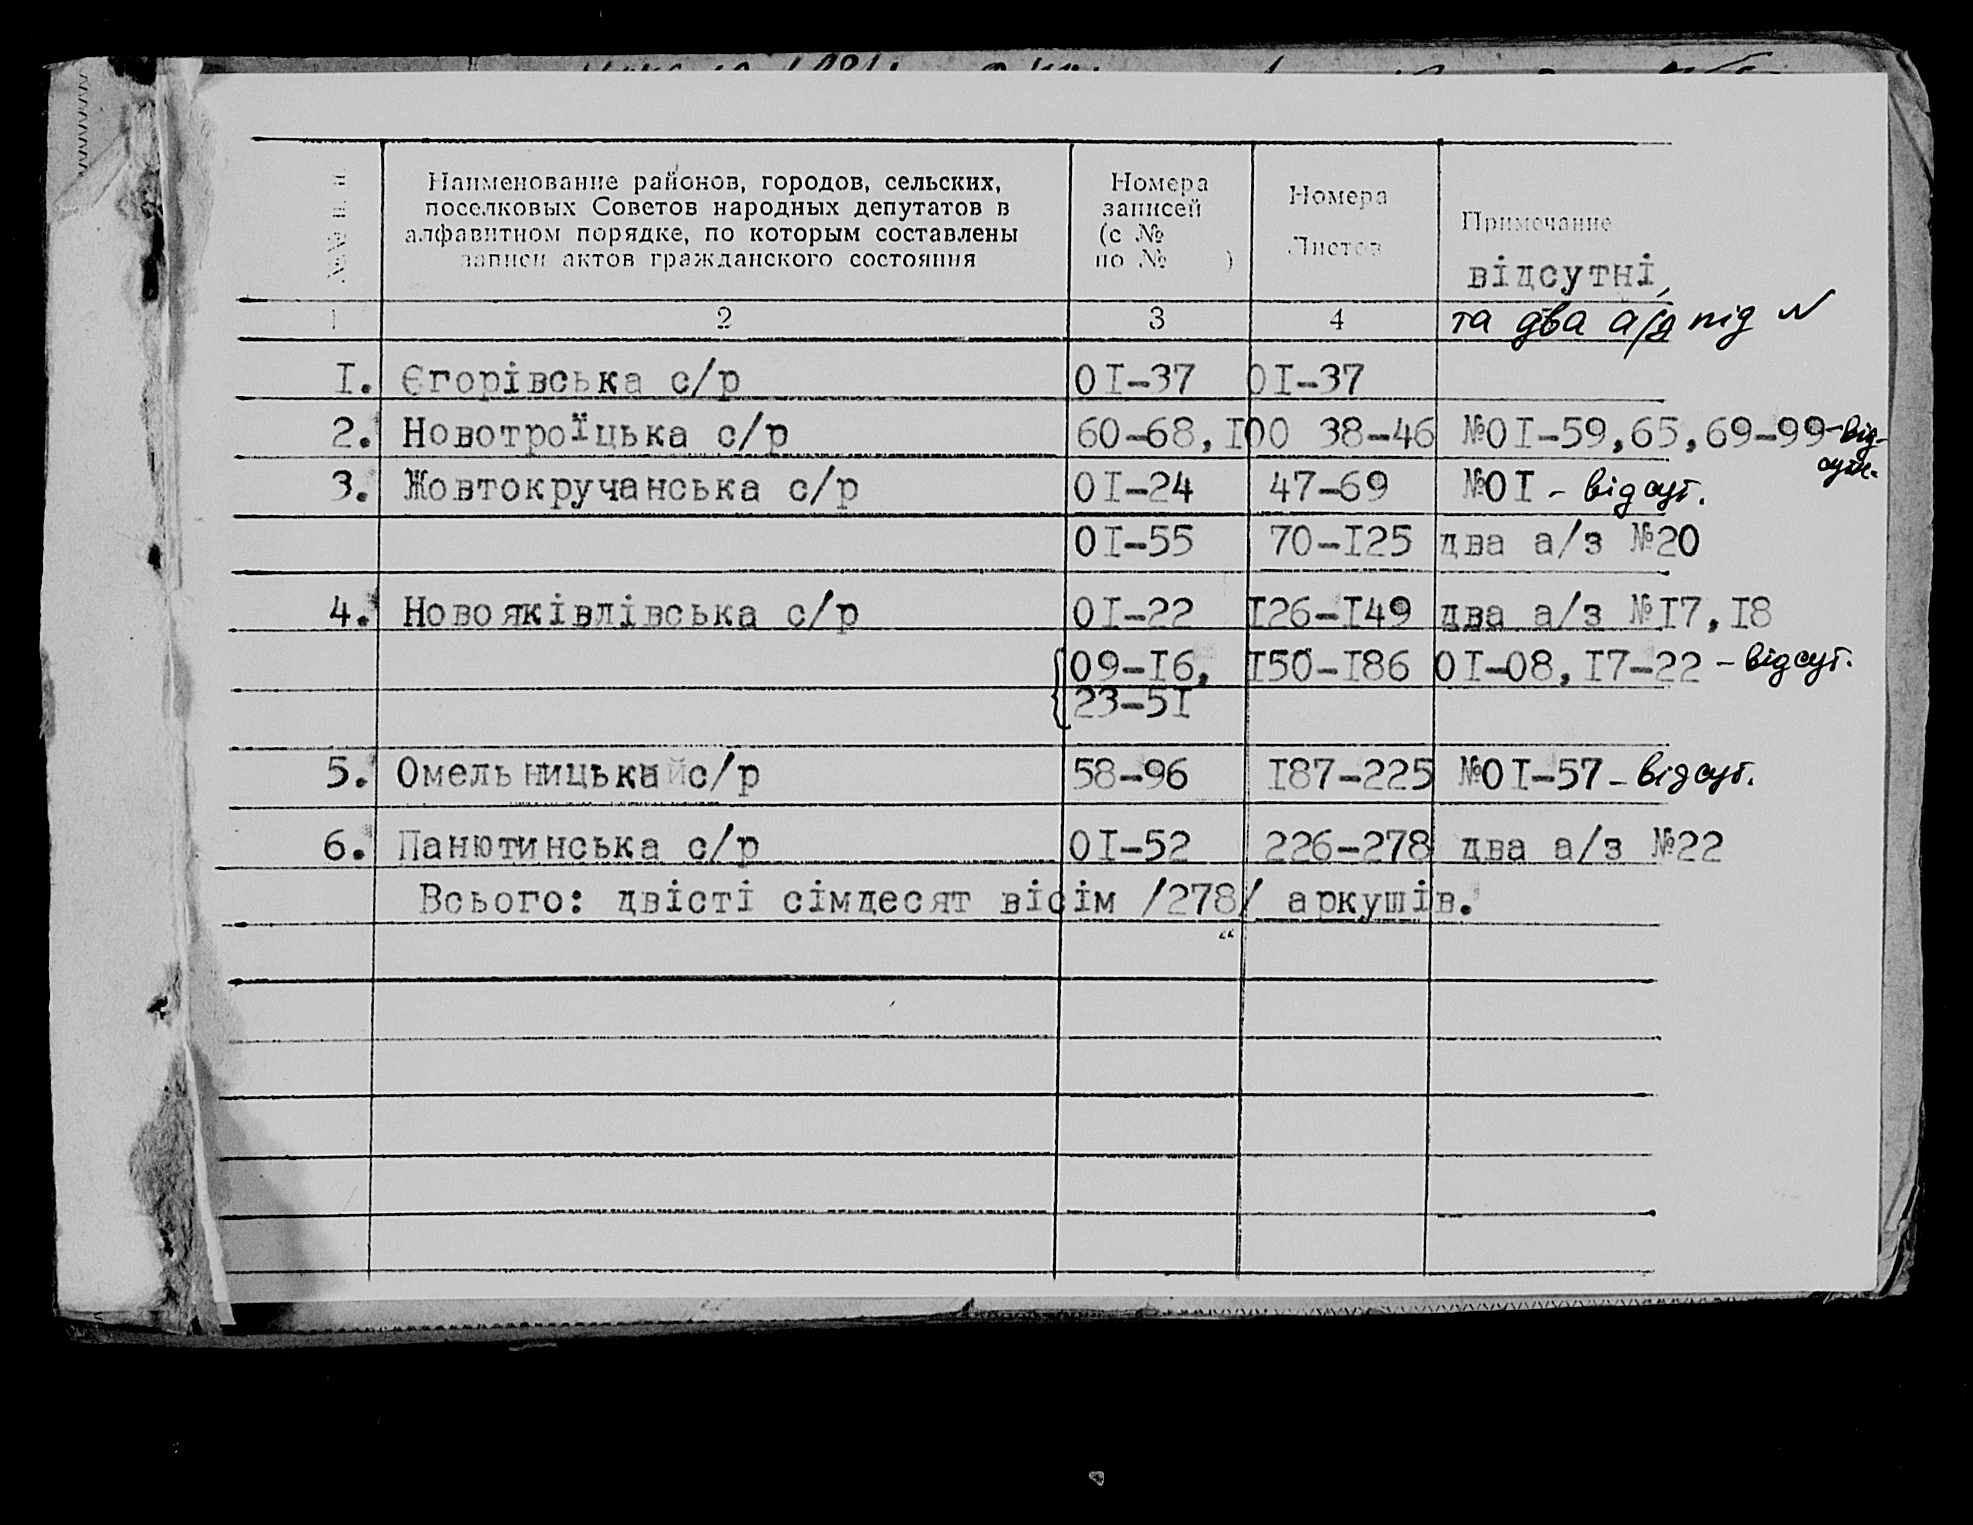 №№ п. п.
Наименование районов, городов, сельских,
поселковых Советов народных депутатов в
алфавитном порядке, по которым составлены
записи актов гражданского состояния
Номера
записей
(с №
по № )
Номера
Листов
Примечание
відсутні,
та два а/з під №
1 2 3 4
I. Єгорівська с/р 0I-37 0I-37
2. Новотроїцька с/р 60-68,I00 38-46 №0I-59,65,69-99-від-
сутн.
3. Жовтокручанська с/р 0I-24 47-69 №0I - відсут.
0I-55 70-I25 два а/з №20
4. Новояківлівська с/р 0I-22 I26-I49 два а/з №I7,I8
09-I6, I50-I86 0I-08,I7-22 - відсут.
23-5I
5. Омельницька с/р 58-96 I87-225 №0I-57 - відсут.
6. Панютинська с/р 0I-52 226-278 два а/з №22
Всього: двісті сімдесят вісім /278/ аркушів.